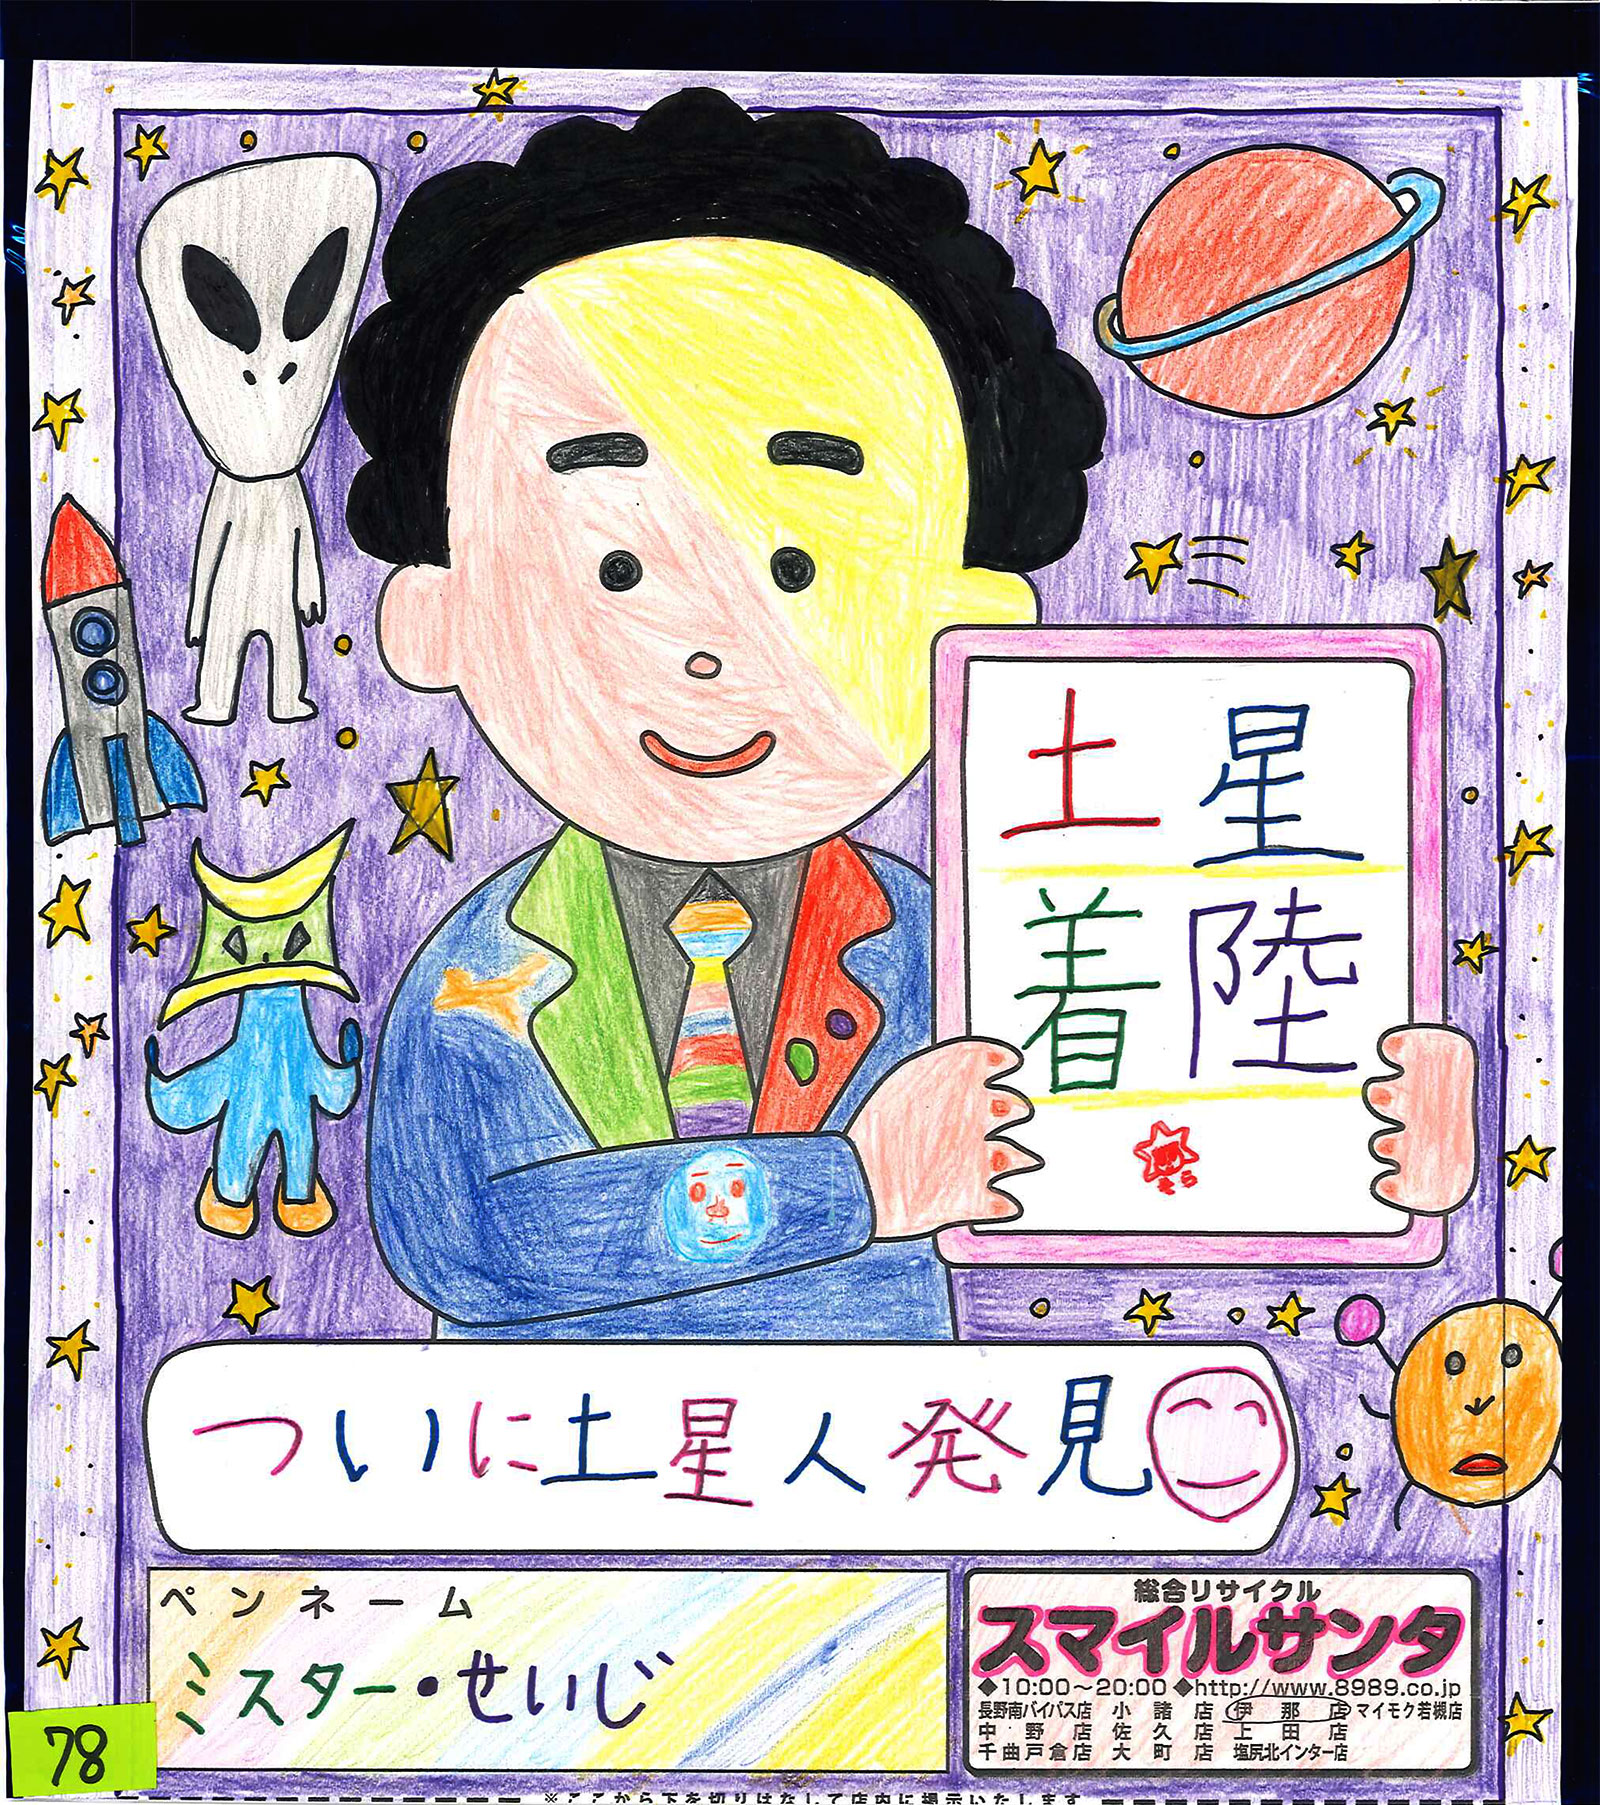 土星
着陸
そら
ついに土星人発見
ペンネーム
ミスター・せいじ
78
総合リサイクル
スマイルサンタ
◆10:00～20:00 ◆http://www.8989.co.jp
長野南バイパス店 小諸店 伊那店 マイモク若槻店
中野店 佐久店 上田店
千曲戸倉店 大町店 塩尻北インター店
※ここから下を切りはなして店内に掲示いたします